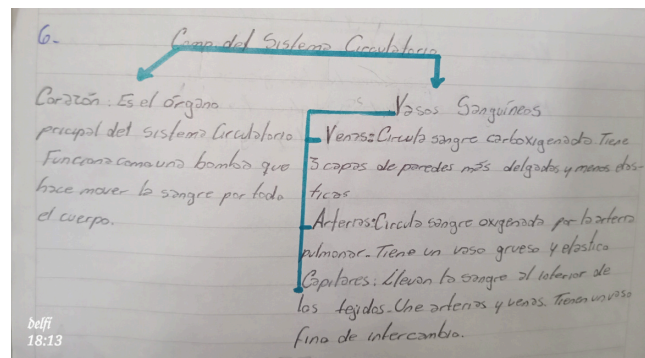 6.-
Comp. del Sistema Circulatorio
Corazón. Es el órgano
pricipal del sistema Circulatorio
Funciona como una bomba que
hace mover la sangre por todo
el cuerpo.
Vasos Sanguíneos
Venas: Circula sangre carboxigenada. Tiene
3 capas de paredes más delgadas y menos elás-
ticas
Arterias: Circula sangre oxigenada por la arteria
pulmonar. Tiene un vaso grueso y elastico
Capilares: Llevan la sangre al interior de
los tejidos. Une arterias y venas. Tienen un vaso
fino de intercambio.
belfi
18:13